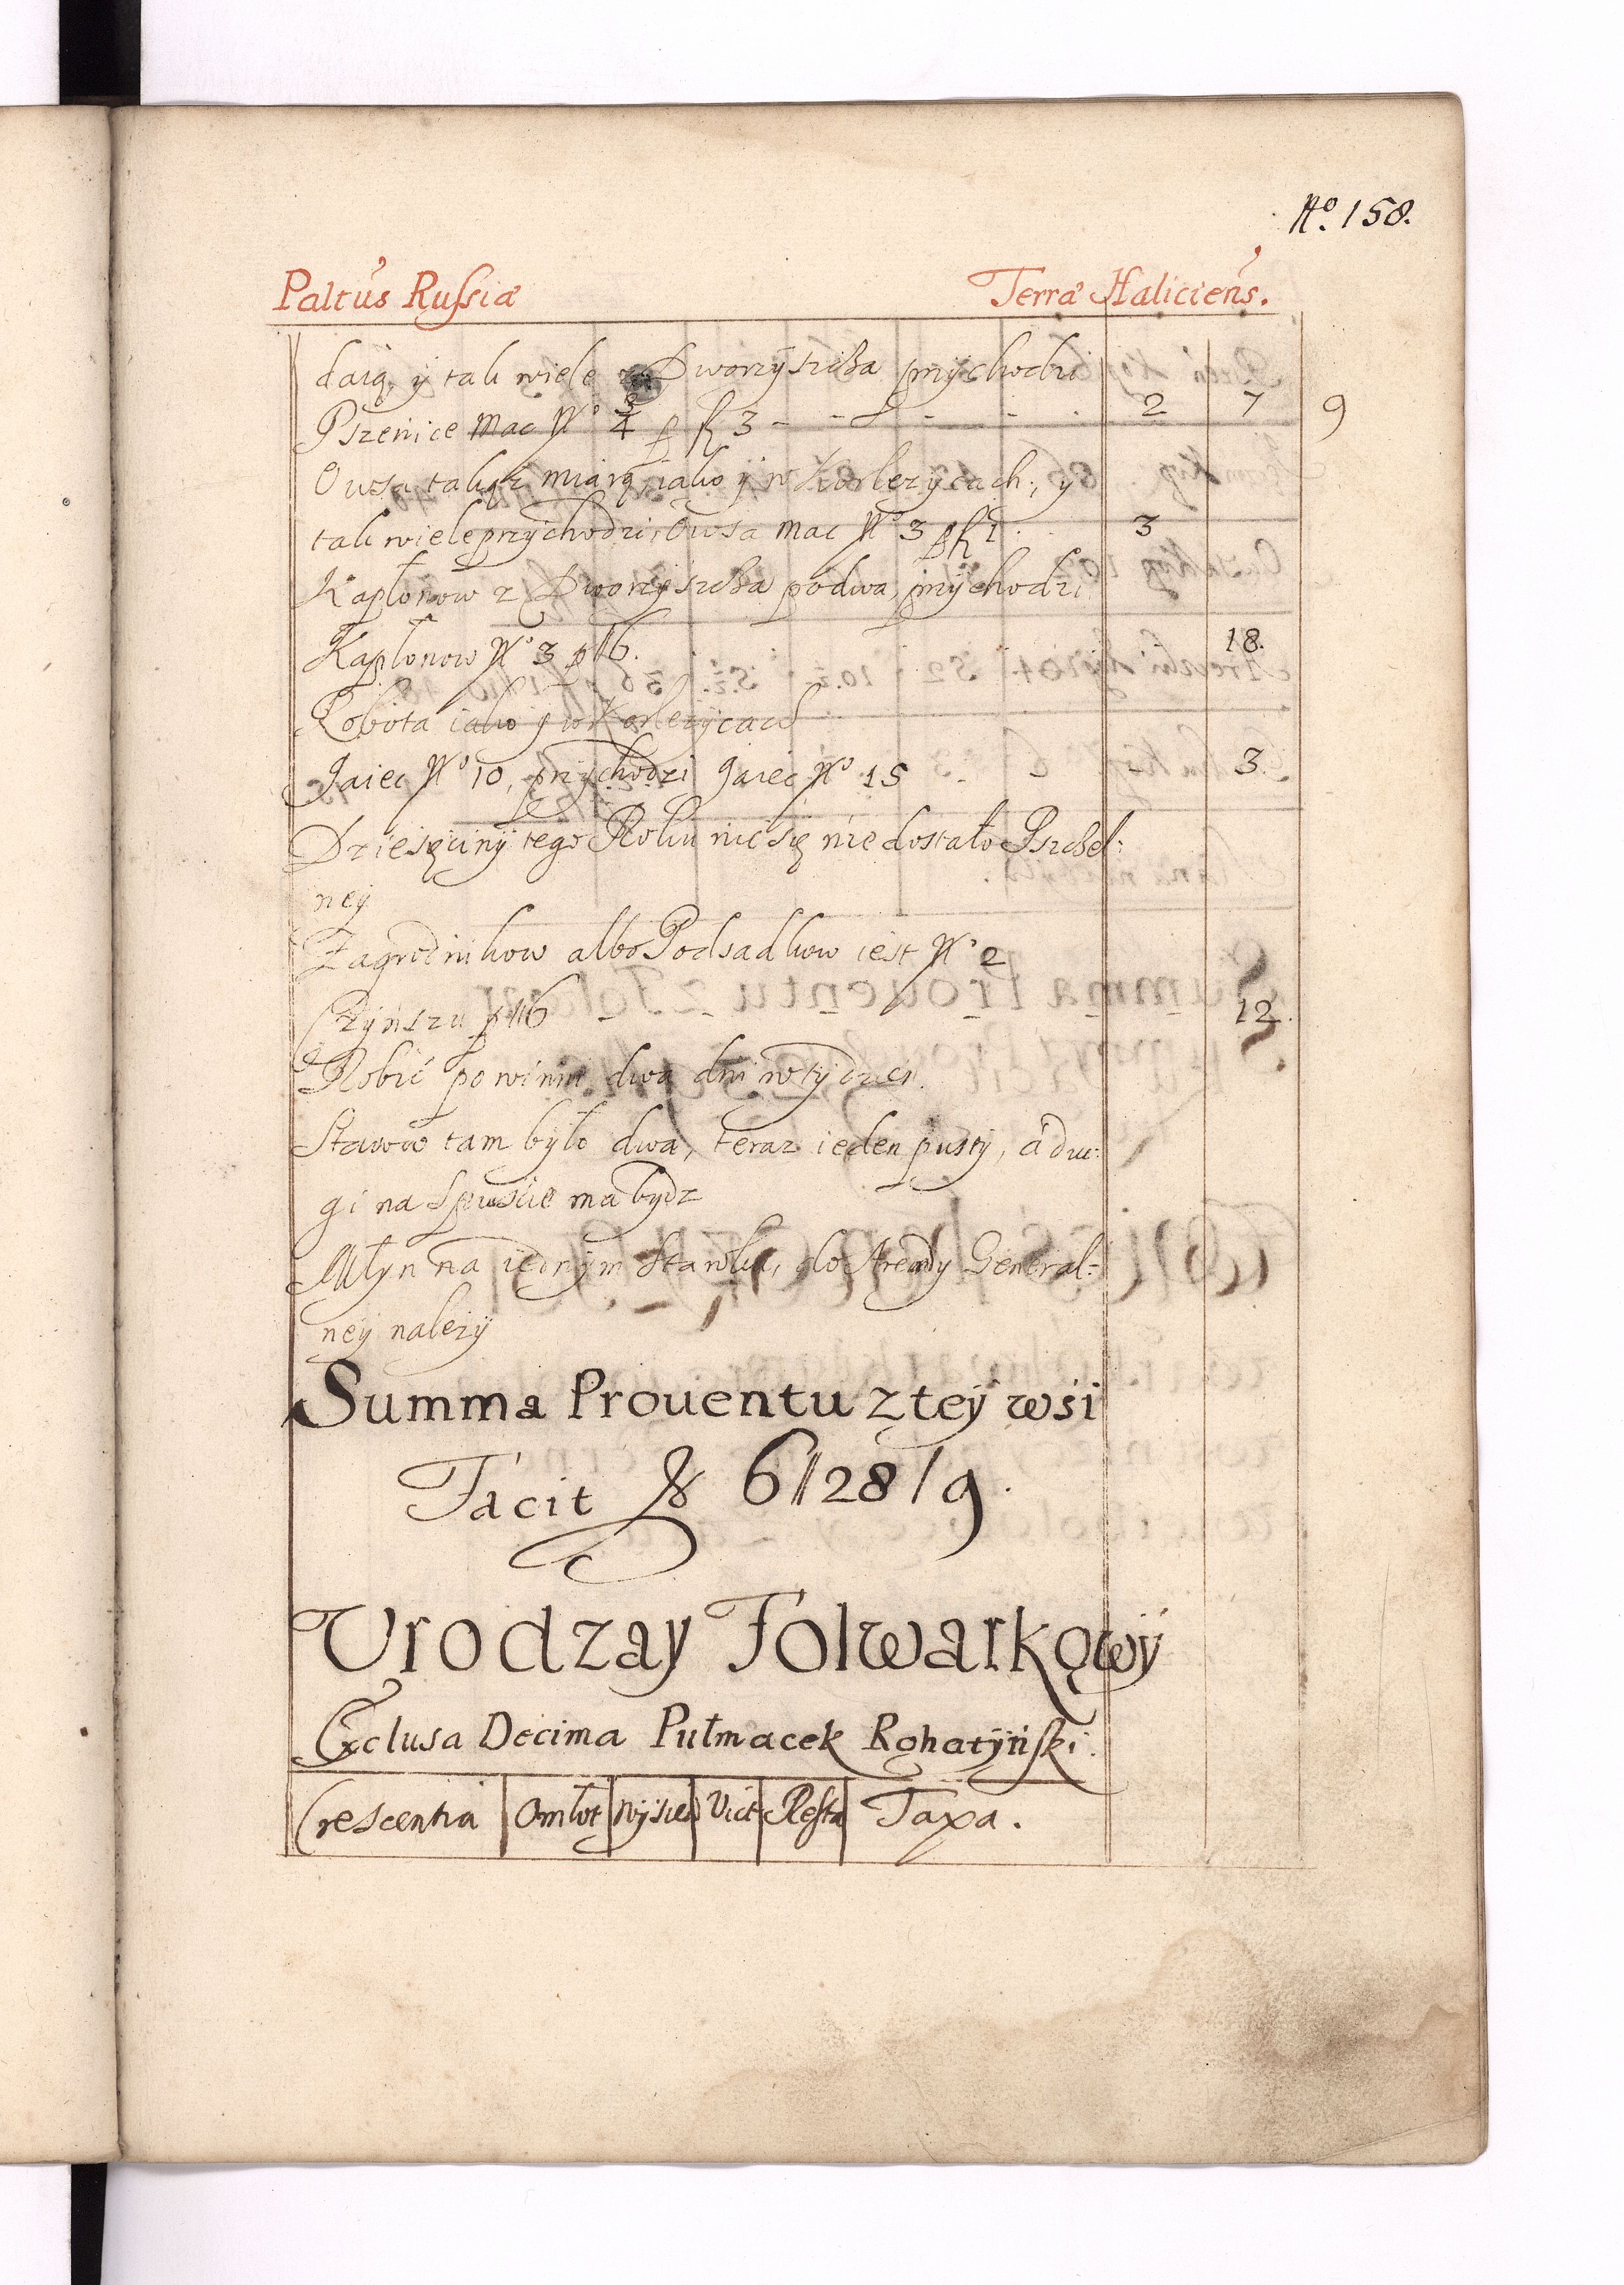 No. 158.
Paltus Russiæ Terræ Haliciens.
daią, y tak wiele z Dworzyszcza przychodzi
Pszenice Mac No 3/4 p fl 3 - - - - - 2 7 9
Owsa takąż miarą, iako y w Korlezycach, y
tak wiele przychodzi, Owsa Mac No 3 p fl 1 3
Kapłonow z Dworzyszcza po dwa, przychodzi
Kapłonow No 3 p 6. 18.
Robota iako y w Korlezycach
Jaiec No 10, przychodzi Jaiec No 15 3.
Dziesięciny tego Roku nic się nie dostało Pszczel:
ney
Zagrodnikow albo Podsadkow iest No 2
Czynszu p 6 12.
Robić powinni dwa dni w tydzień.
Stawow tam było dwa, teraz ieden pusty, a dru:
gi na Spuście ma bydz
Młyn na iednym Stawku, do Arendy General:
ney nalezy
Summa Prouentu z tey wsi
Facit fl 6//28/9.
Vrodzay Folwarkowy
Exclusa Decima Pułmacek Rohatyński.
Crescentia Omłot Wysiew Vict Resta Taxa.